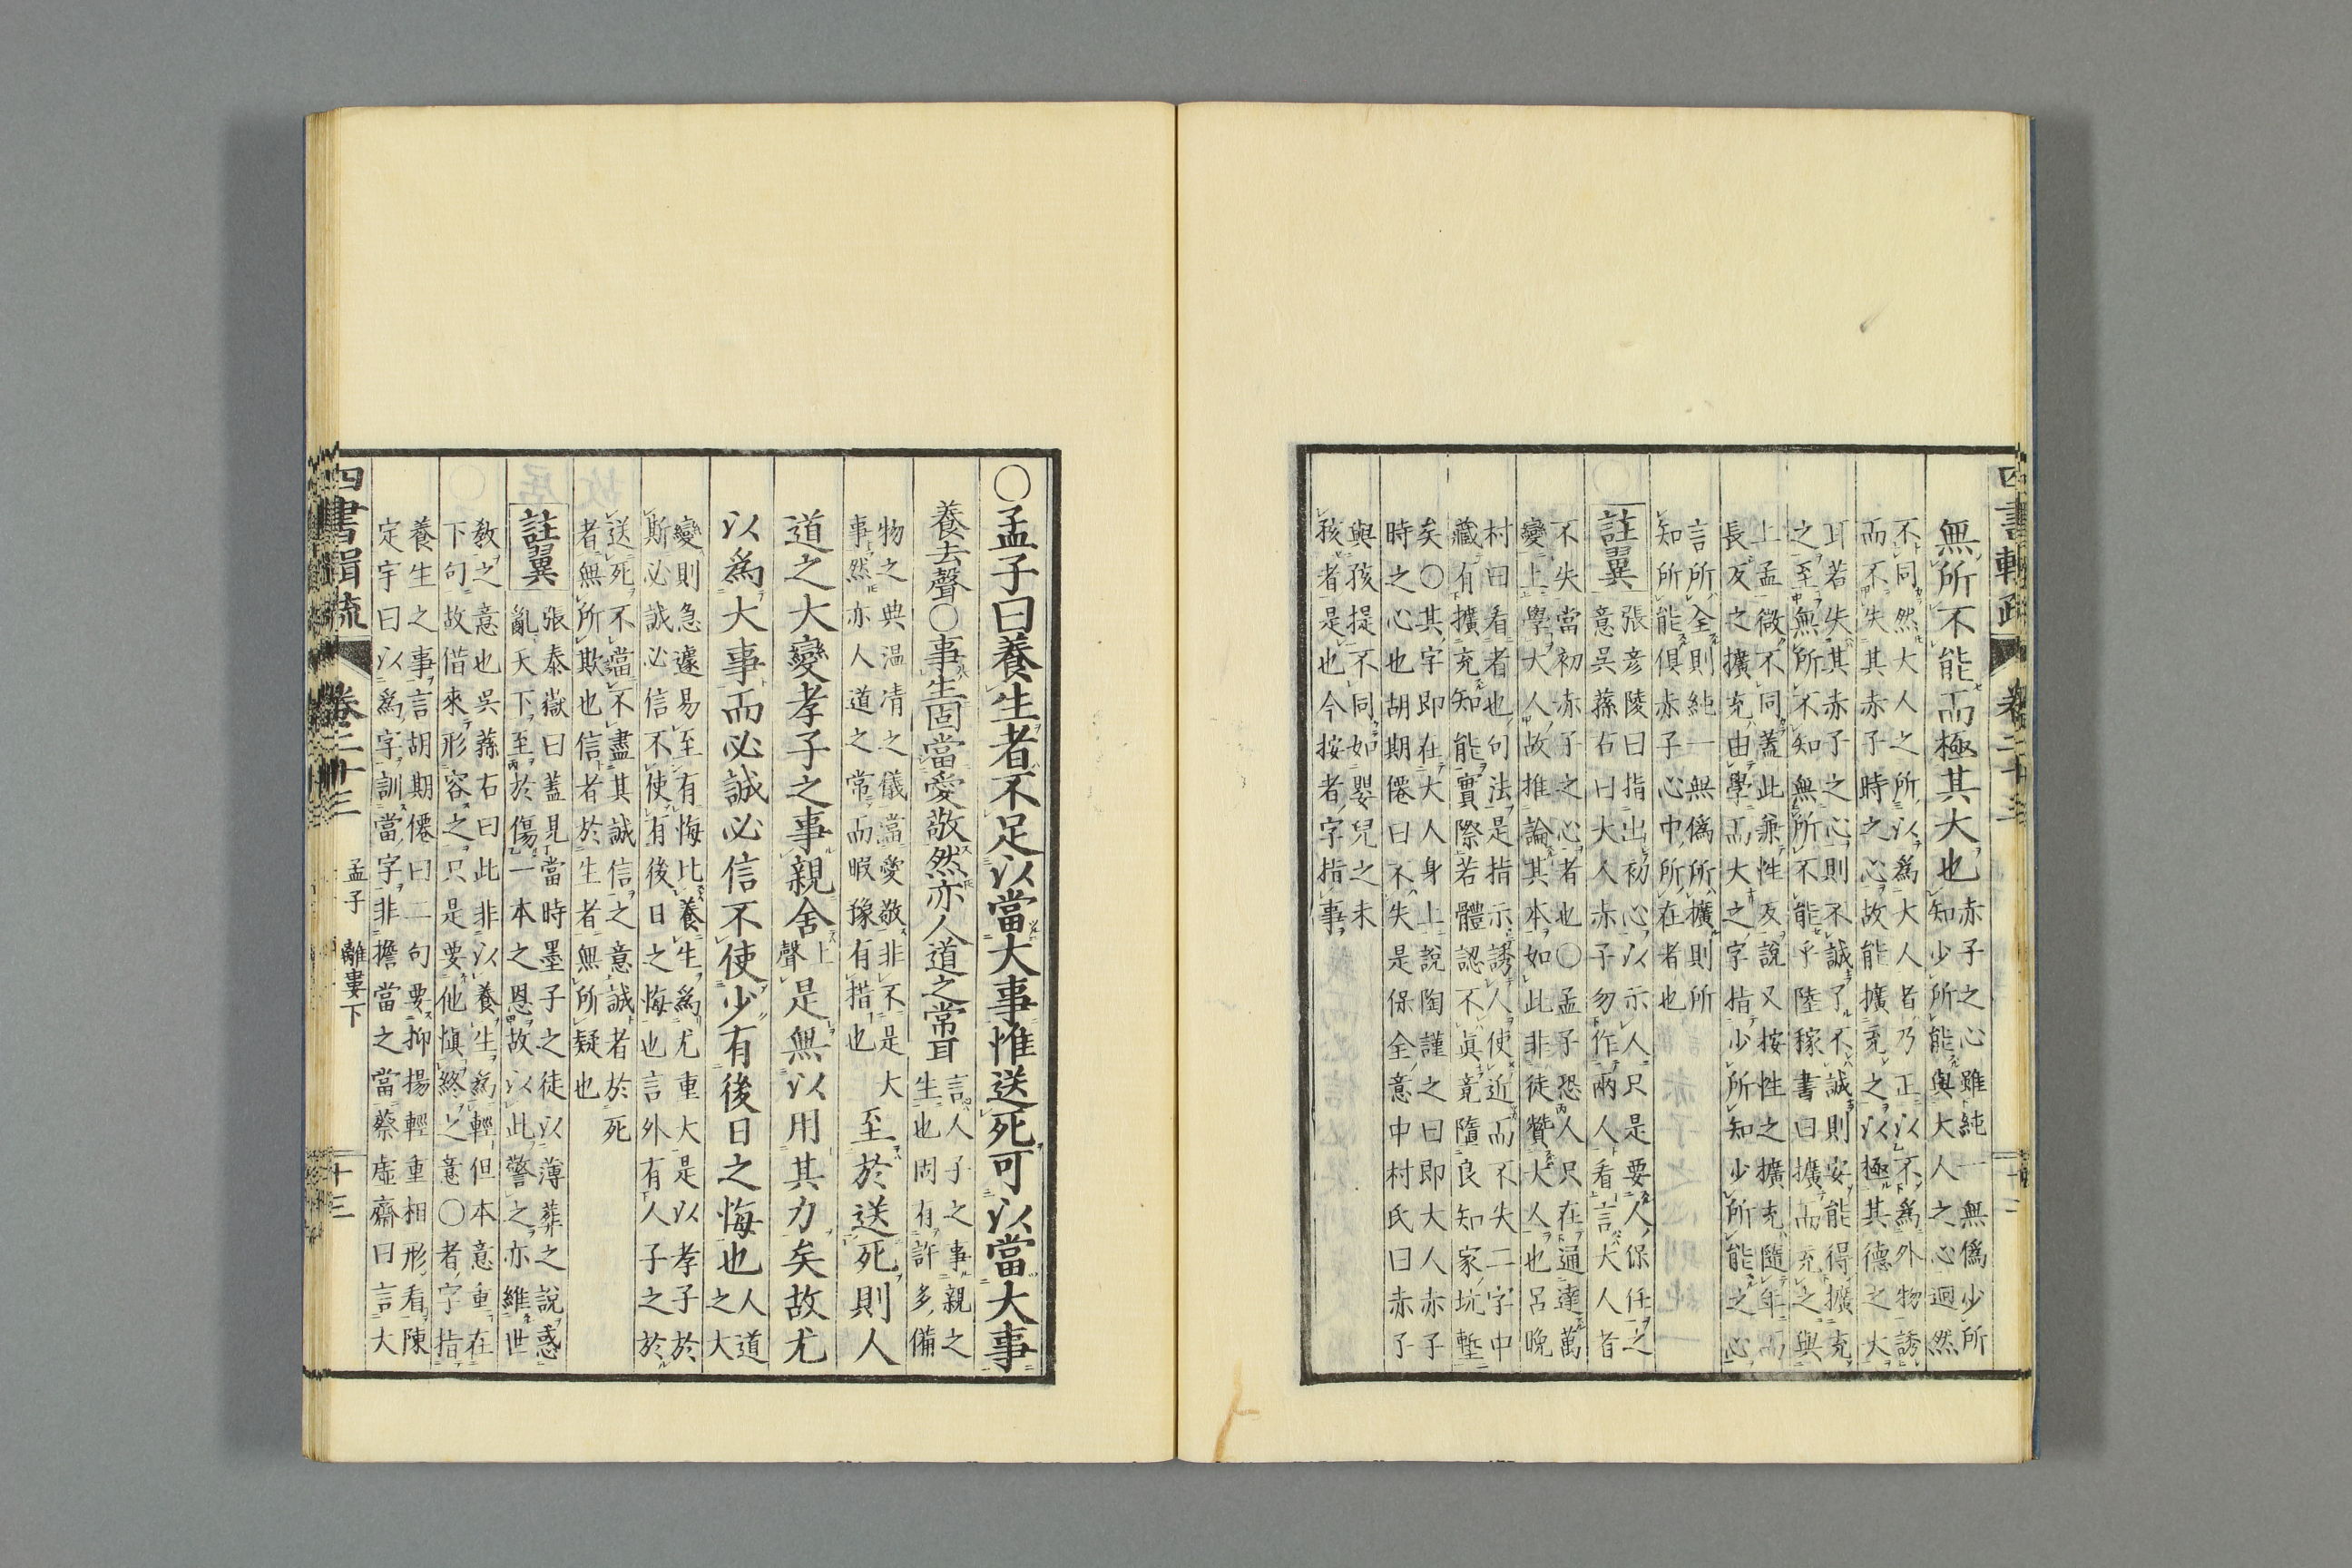 四書輯疏 卷二十三 十二
無所不能而極其大也
赤子之心雖純一無偽少所
知少所能與大人之心迥然
不同然大人之所以為大人者乃正以不為外物誘
而不失其赤子時之心故能擴充之以極其德之大
耳若失其赤子之心則不誠了不誠則安能得擴充
之至無所不知無所不能乎陸稼書曰擴而充之與
上孟微不同蓋此兼性反說又按性之擴充隨年而
長反之擴充由學而大之字指少所知少所能之心
言所全則純一無偽所擴則所
知所能俱赤子心中所在者也
註翼
張彥陵曰指出初心以示人只是要人保任之
意吳蓀右曰大人赤子勿作兩人看言大人者
不失當初赤子之心者也○孟子恐人只在通達萬
變上學大人故推論其本如此非徒贊大人也呂晚
村曰看者也句法是指示誘人使近而不失二字中
藏有擴充知能實際若體認不真竟隨良知家坑塹
矣○其字即在大人身上說陶謹之曰即大人赤子
時之心也胡期僊曰不失是保全意中村氏曰赤子
與孩提不同如嬰兒之未
孩者是也今按者字指事
○孟子曰養生者不足以當大事惟送死可以當大事
養去聲○事生固當愛敬然亦人道之常耳
言人子之事親之
生也固有許多備
物之典温凊之儀當愛敬非不是大
事然亦人道之常而暇豫有措也
至於送死則人
道之大變孝子之事親舍
上
聲
是無以用其力矣故尤
以為大事而必誠必信不使少有後日之悔也
人道
之大
變則急遽易至有悔比養生為尤重大是以孝子於
斯必誠必信不使有後日之悔也言外有人子之於
送死不當不盡其誠信之意誠者於死
者無所欺也信者於生者無所疑也
註翼
張泰嶽曰蓋見當時墨子之徒以薄葬之說惑
亂天下至於傷一本之恩故以此警之亦維世
教之意也吳蓀右曰此非以養生為輕但本意重在
下句故借來形容之只是要他慎終之意○者字指
養生之事言胡期僊曰二句要抑揚輕重相形看陳
定宇曰以為字訓當字非擔當之當蔡虛齋曰言大
四書輯疏 卷二十三 孟子 離婁下 十三